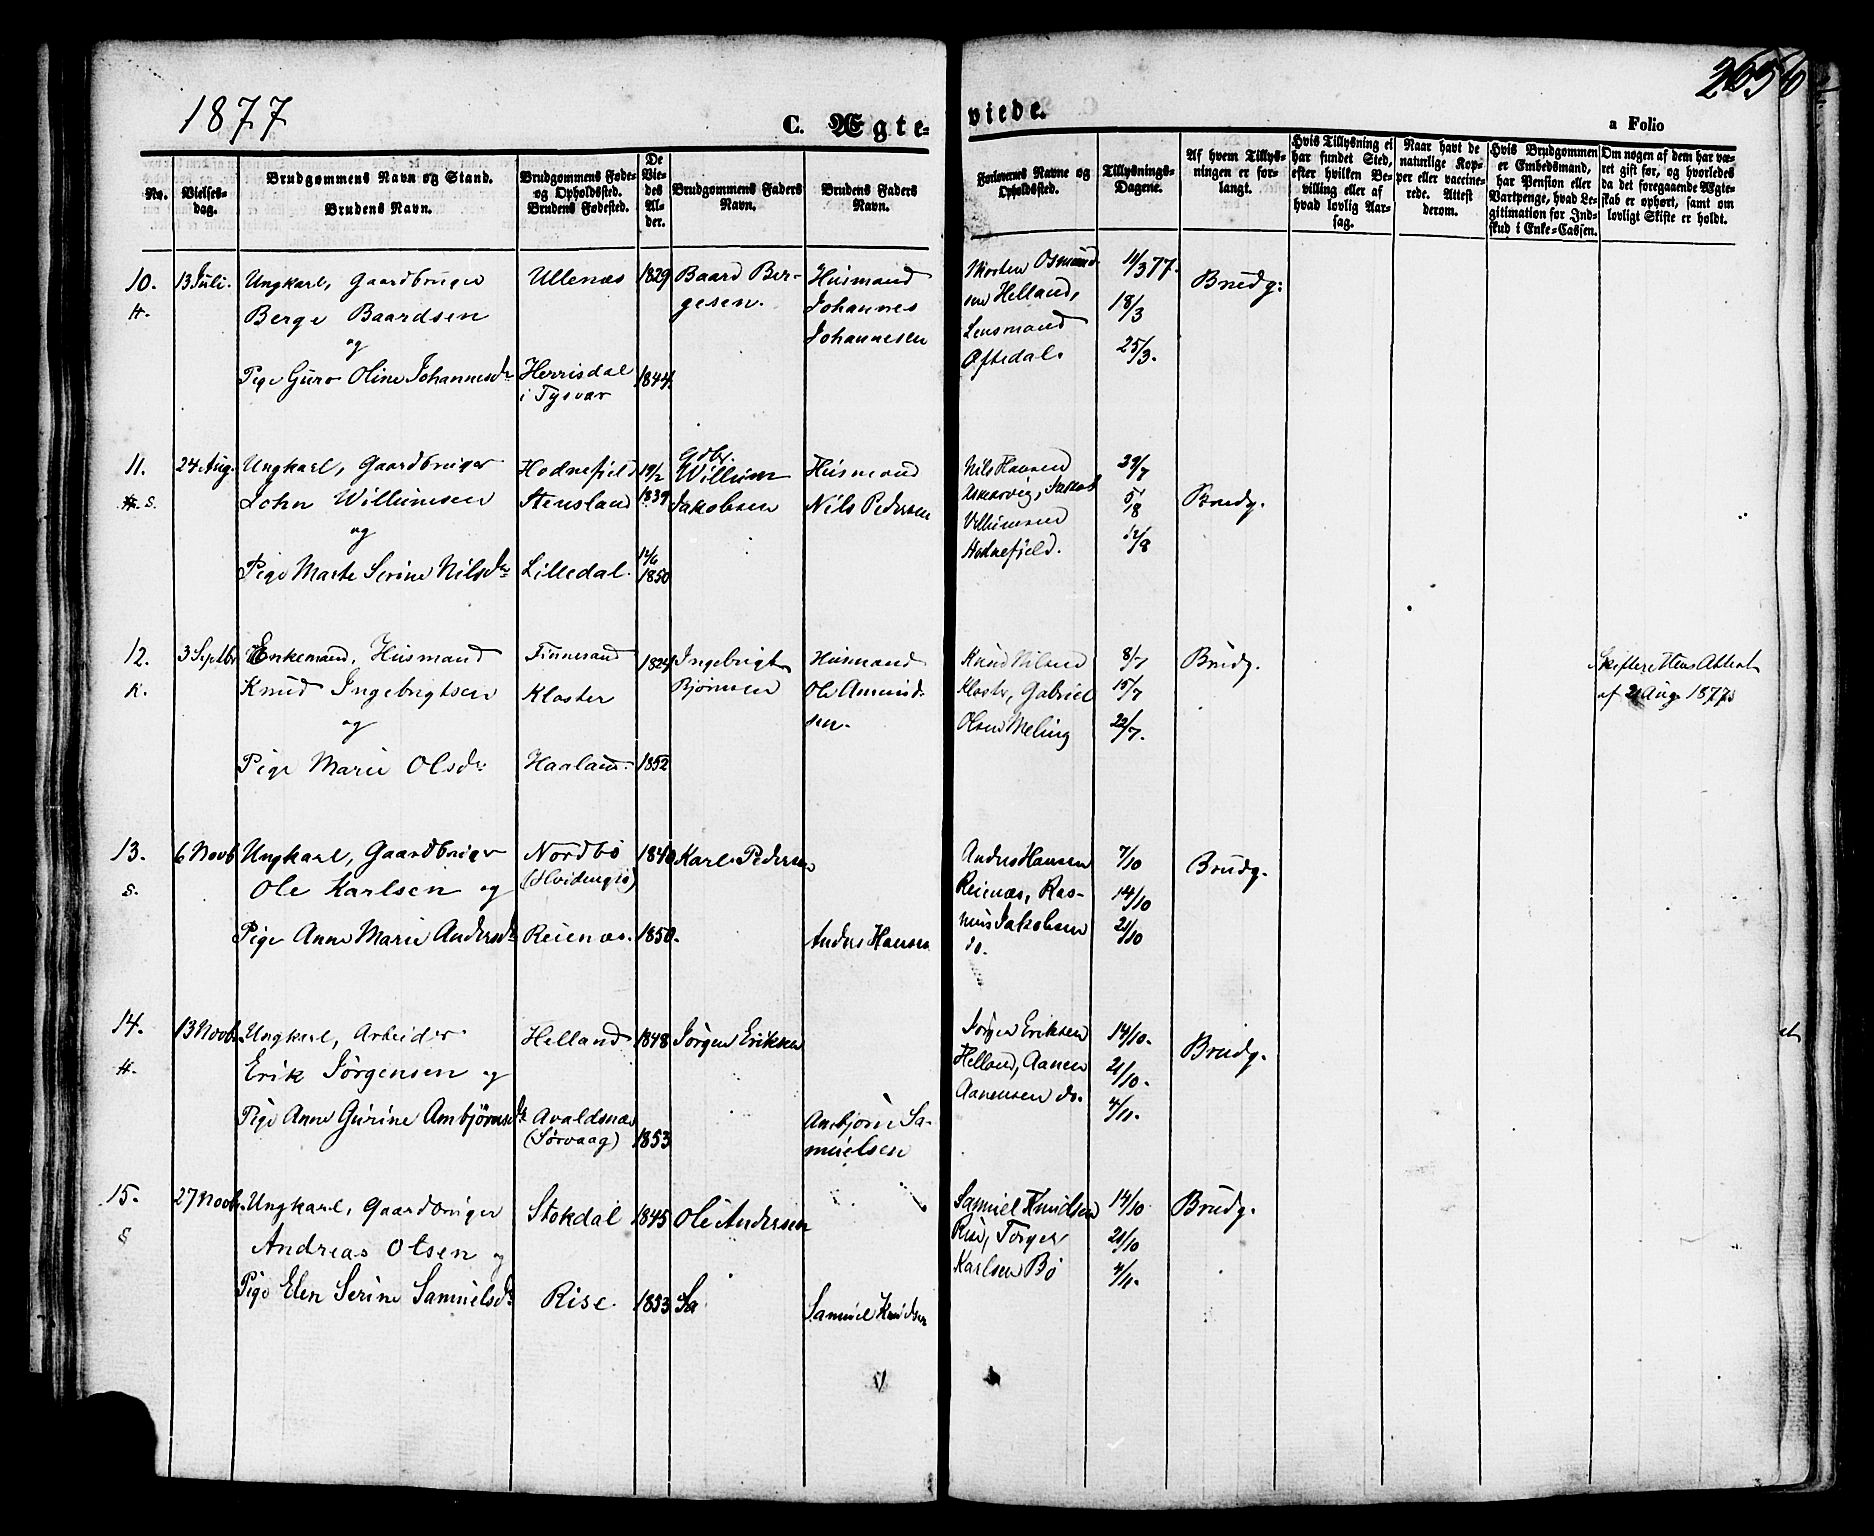 1877
C. Ægte-
viede.
265
a Folio
No.
Vielses-
dag.
Brudgommens Navn og Stand.
Brudens Navn.
Brudgommens Føde-
og Opholdssted.
Brudens Fødested.
De
Vie-
des
Al-
der.
Brudgommens Faders
Navn.
Brudens Faders
Navn.
Forlovernes Navne og
Opholdssted.
Tillysnings-
Dagene.
Af hvem Tillys-
ningen er for-
langt.
Hvis Tillysning ei
har fundet Sted,
efter hvilken Be-
villing eller af
hvad lovlig Aar-
sag.
Naar havt de
naturlige Kop-
per eller vaccine-
rede. Attest
derom.
Hvis Brudgommen
er Embedsmand,
har Pension eller
Vartpenge, hvad Le-
gitimation for Ind-
skud i Enke-Cassen.
Om nogen af dem har væ-
ret gift før, og hvorledes
da det foregaaende Ægte-
skab er ophørt, samt om
lovligt Skifte er holdt.
10.
H.
13 Juli.
Ungkarl, Gaardbruger
Berge Baardsen
og
Pige Guro Oline Johannesdr
Ullenæs
Herrisdal
i Tysvær
1829
1844
Baard Ber-
gesen.
Husmand
Johannes
Johannesen
Morten Osmund-
sen Helland,
Lensmand
Oftedal.
11/3 77.
18/3
25/3.
Brudg:
11.
S.
24 Aug.
Ungkarl, Gaardbruger
John Willumsen
og
Pige Marte Serine Nilsdr
Hodnefjeld
Stensland
Lilledal.
19/2
1839
12/6
1850
Gdbr.
Willum
Jakobsen
Husmand
Nils Pedersen
Nils Hansen
Askervig, Jakob
Villumsen
Hodnefjeld.
29/7
5/8
12/8
Brudg.
12.
K.
3 Septbr
Enkemand, Husmand
Knud Ingebrigtsen
og
Pige Marie Olsdr
Finnesand
Kloster
Haaland.
1824
1852
Ingebrigt
Bjørnsen
Husmand
Ole Amund-
sen.
Knud Nilsen
Kloster, Gabriel
Olsen Meling
8/7
15/7
22/7.
Brudg.
Skifterettens Attest
af 2 Aug 1877
13.
S.
6 Novb
Ungkarl, Gaardbruger
Ole Karlsen og
Pige Anne Marie Andersdr
Nordbø
(Hvidingsø)
Reienæs.
1840
1850.
Karl Pedersen
Anders Hansen
Anders Hansen
Reienæs, Ras-
mus Jakobsen
do.
7/10
14/10
21/10
Brudg.
14.
H.
13 Novb.
Ungkarl, Arbeider
Erik Jørgensen og
Pige Anne Gurine Ambjørnsdr
Helland
Avaldsnæs
(Sørvaag)
1848
1853
Jørgen Eriksen
Ambjørn Sa-
muelsen
Jørgen Eriksen
Helland, Aanen
Aanensen do.
14/10.
21/10.
4/11.
Brudg.
15.
S
27 Novb.
Ungkarl, Gaardbruger
Andreas Olsen og
Pige Elen Serine Samuelsdr
Stokdal
Rise.
1845
1853
Ole Andersen
Sa
Samuel Knudsen
Samuel Knudsen
Rise, Torger
Karlsen Bø
14/10
21/10
4/11.
Brudg.